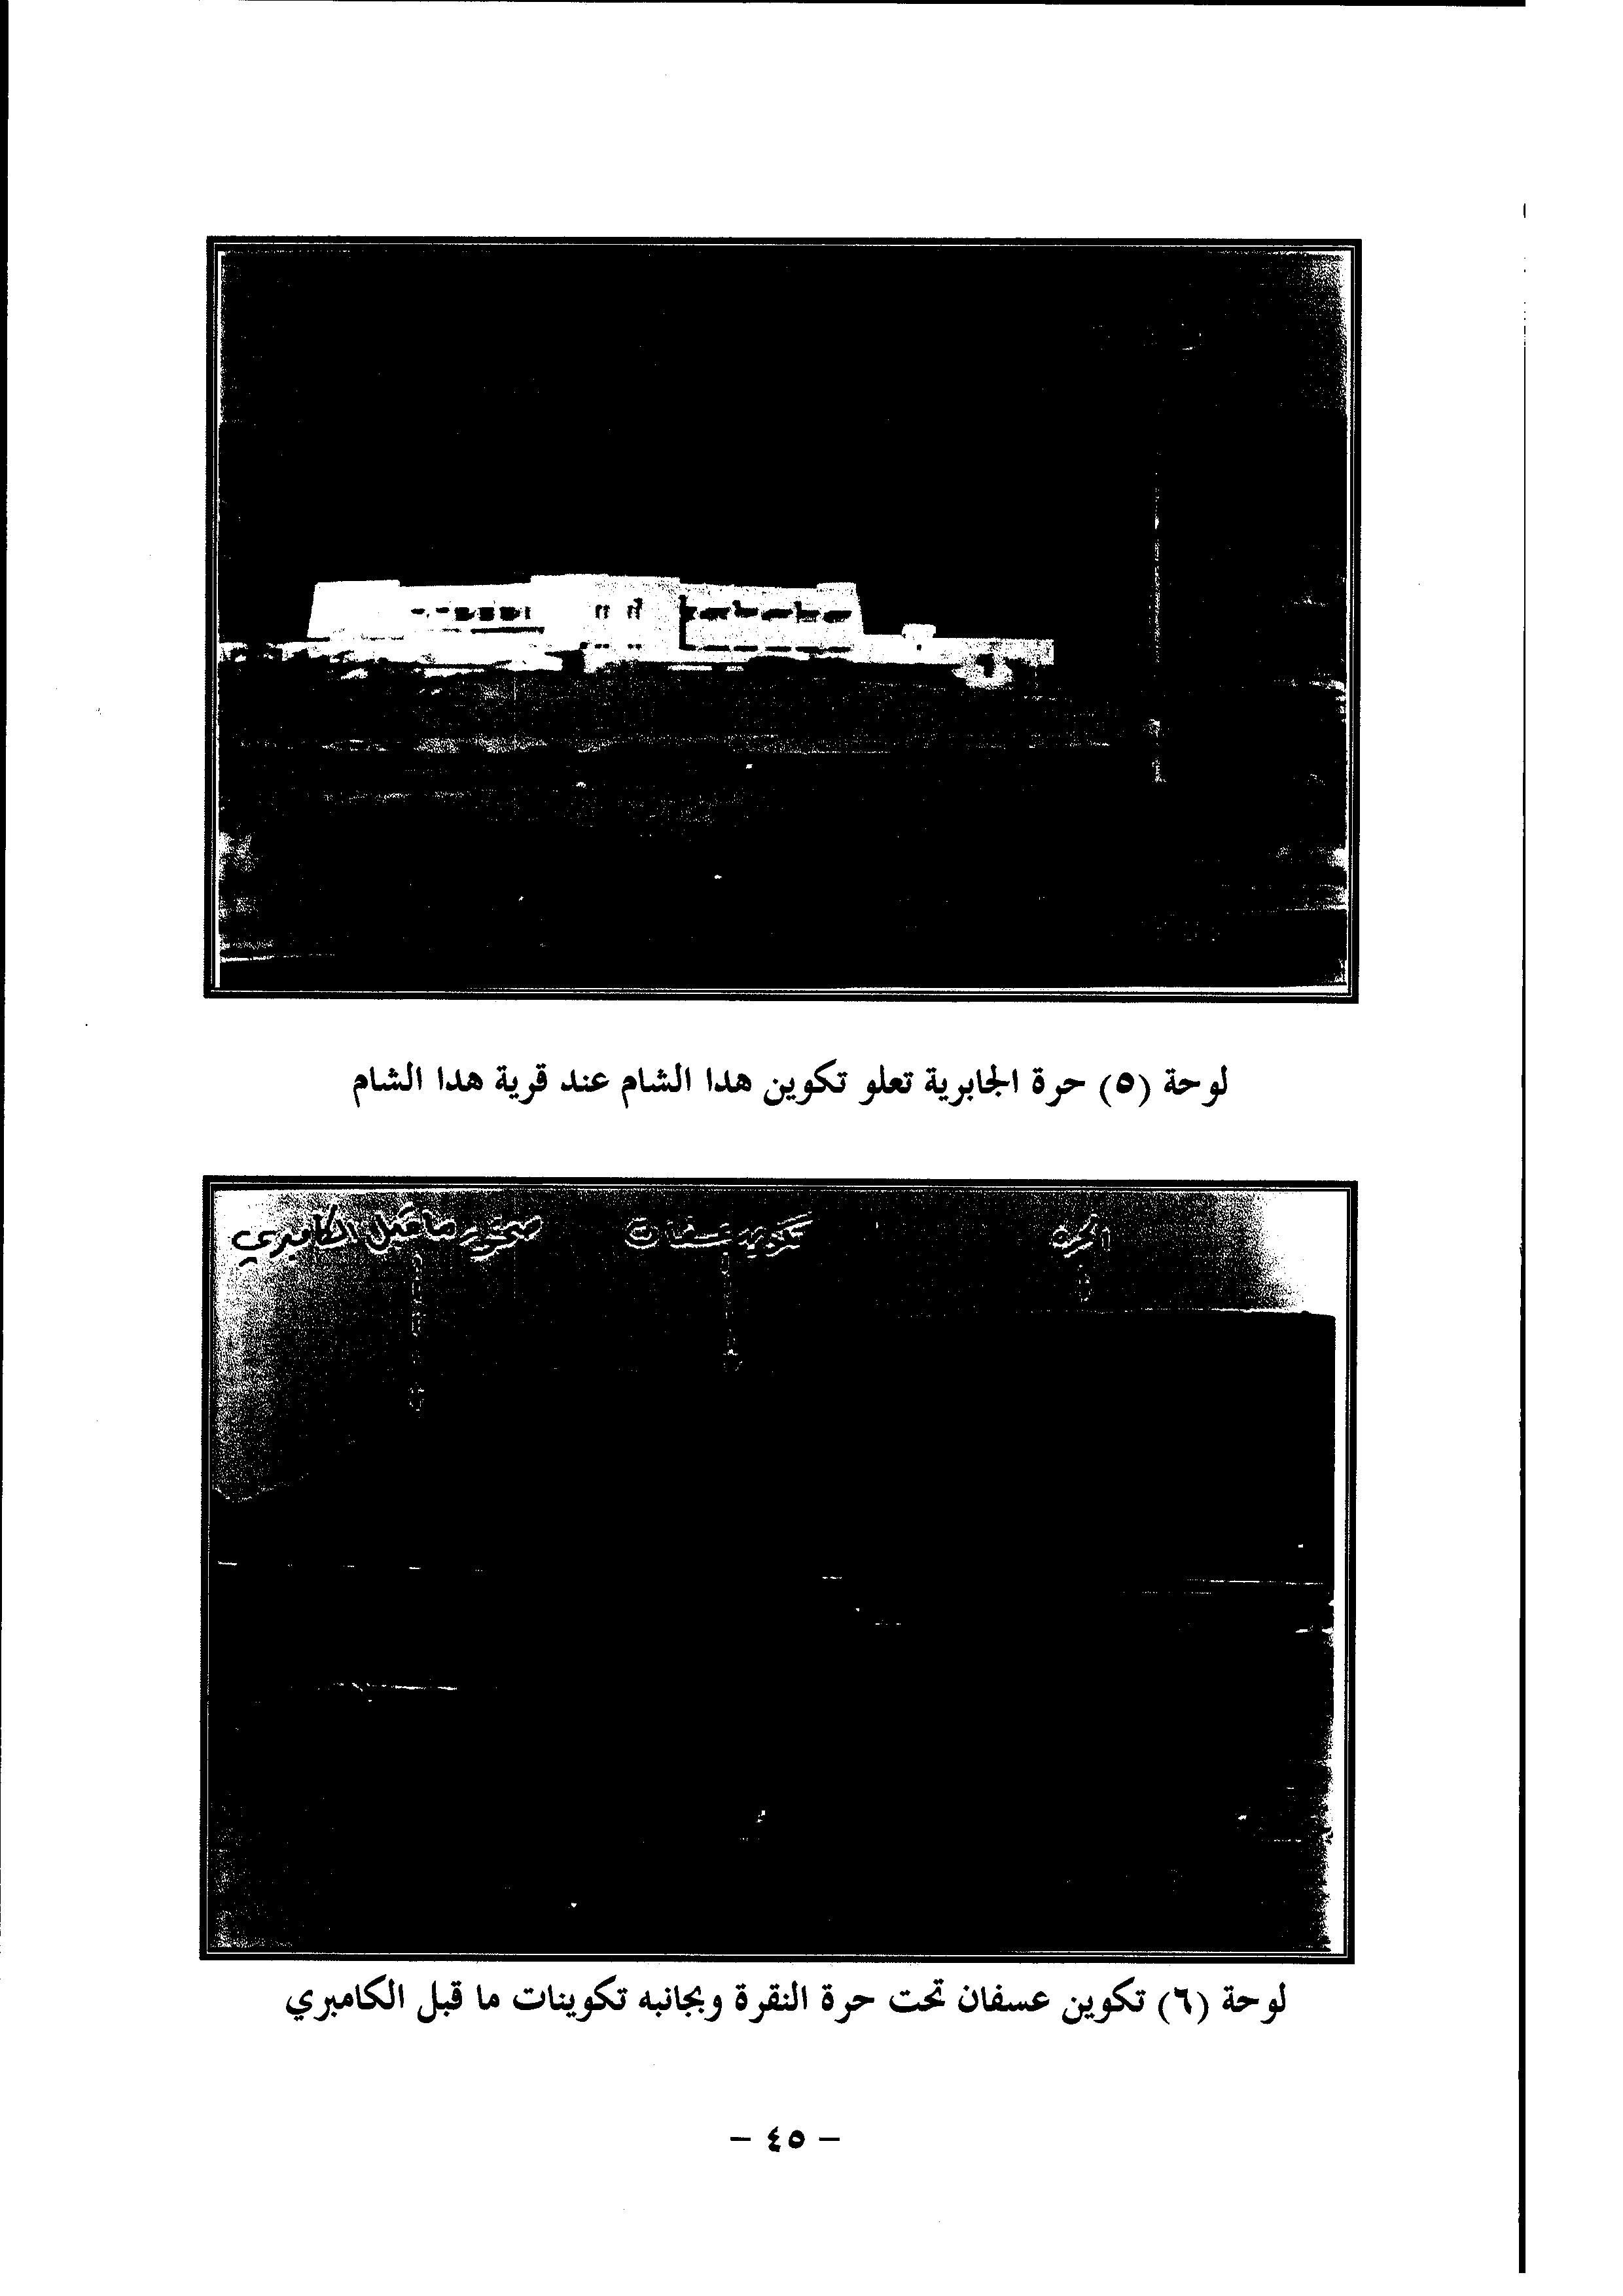 لوحة (٥) حرة الجابرية تعلو تكوين هدا الشام عند قرية هدا الشام
الحرة
تكوين عسفان
صخور ما قبل الكامبري
لوحة (٦) تكوين عسفان تحت حرة النقرة وبجانبه تكوينات ما قبل الكامبري
– ٤٥ –